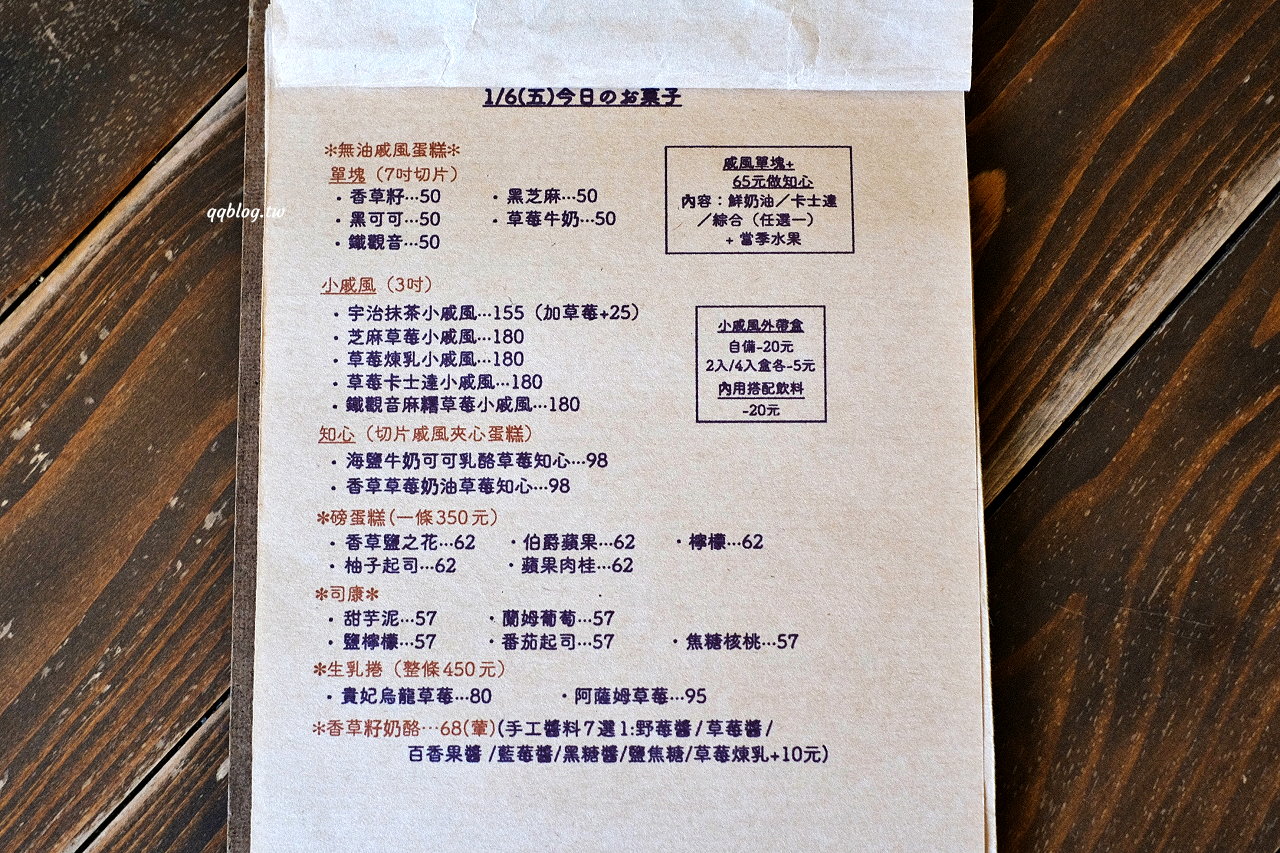 1/6(五)今日のお菓子
＊無油戚風蛋糕＊
單塊（7吋切片）
・香草籽…50 ・黑芝麻…50
・黑可可…50 ・草莓牛奶…50
・鐵觀音…50
戚風單塊+
65元做知心
內容：鮮奶油／卡士達
／綜合（任選一）
+ 當季水果
qqblog.tw
小戚風（3吋）
・宇治抹茶小戚風…155（加草莓+25）
・芝麻草莓小戚風…180
・草莓煉乳小戚風…180
・草莓卡士達小戚風…180
・鐵觀音麻糬草莓小戚風…180
小戚風外帶盒
自備-20元
2入/4入盒各-5元
內用搭配飲料
-20元
知心（切片戚風夾心蛋糕）
・海鹽牛奶可可乳酪草莓知心…98
・香草草莓奶油草莓知心…98
＊磅蛋糕(一條350元)
・香草鹽之花…62 ・伯爵蘋果…62 ・檸檬…62
・柚子起司…62 ・蘋果肉桂…62
＊司康＊
・甜芋泥…57 ・蘭姆葡萄…57
・鹽檸檬…57 ・番茄起司…57 ・焦糖核桃…57
＊生乳捲（整條450元）
・貴妃烏龍草莓…80 ・阿薩姆草莓…95
＊香草籽奶酪…68(葷)(手工醬料7選1:野莓醬/草莓醬/
百香果醬 /藍莓醬/黑糖醬/鹽焦糖/草莓煉乳+10元)